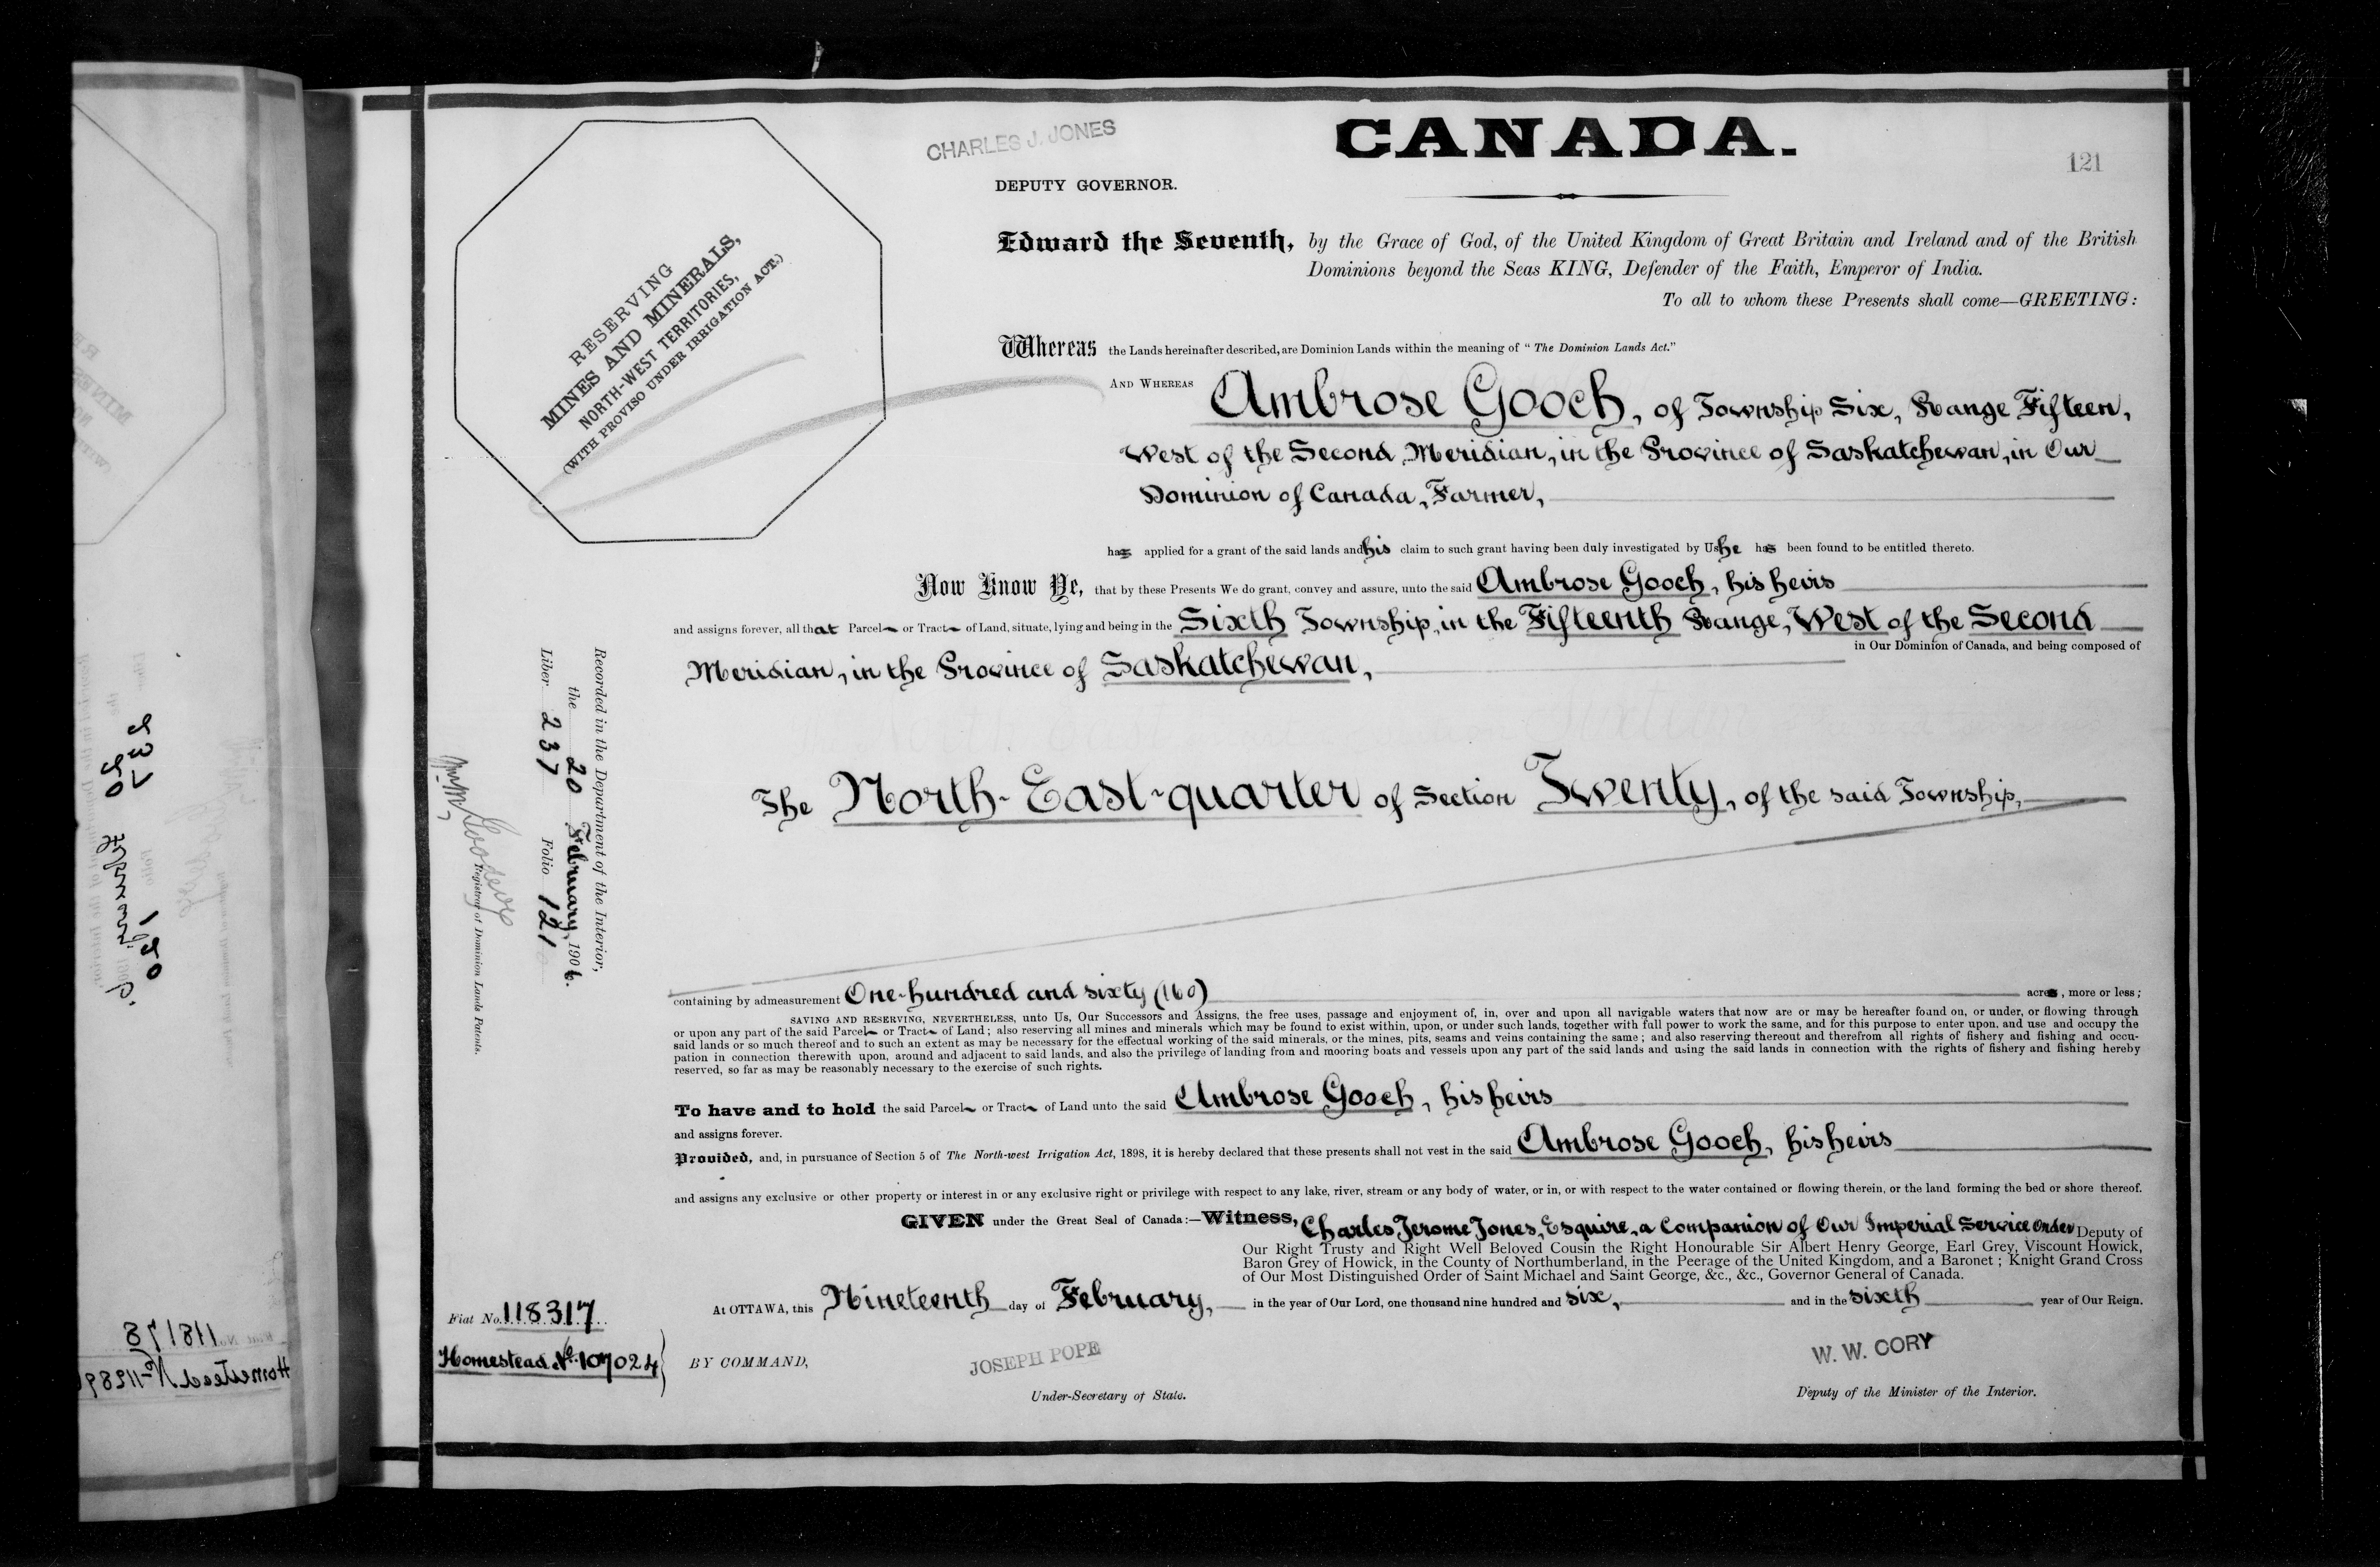 CHARLES J. JONES
DEPUTY GOVERNOR.
CANADA.
121
RESERVING
MINES AND MINERALS,
NORTH-WEST TERRITORIES,
(WITH PROVISO UNDER IRRIGATION ACT.)
Edward the Seventh, by the Grace of God, of the United Kingdom of Great Britain and Ireland and of the British
Dominions beyond the Seas KING, Defender of the Faith, Emperor of India.
To all to whom these Presents shall come—GREETING:
Whereas the Lands hereinafter described, are Dominion Lands within the meaning of "The Dominion Lands Act."
AND WHEREAS Ambrose Gooch, of Township Six, Range Fifteen,
West of the Second Meridian, in the Province of Saskatchewan, in Our
Dominion of Canada, Farmer,
has applied for a grant of the said lands and his claim to such grant having been duly investigated by Us he has been found to be entitled thereto.
Now Know Ye, that by these Presents We do grant, convey and assure, unto the said Ambrose Gooch, his heirs
and assigns forever, all that Parcel or Tract of Land, situate, lying and being in the Sixth Township, in the Fifteenth Range, West of the Second
Meridian, in the Province of Saskatchewan, in Our Dominion of Canada, and being composed of
The North-East-quarter of Section Twenty, of the said Township,
containing by admeasurement One-hundred and sixty (160) acres, more or less;
SAVING AND RESERVING, NEVERTHELESS, unto Us, Our Successors and Assigns, the free uses, passage and enjoyment of, in, over and upon all navigable waters that now are or may be hereafter found on, or under, or flowing through
or upon any part of the said Parcel or Tract of Land; also reserving all mines and minerals which may be found to exist within, upon, or under such lands, together with full power to work the same, and for this purpose to enter upon, and use and occupy the
said lands or so much thereof and to such an extent as may be necessary for the effectual working of the said minerals, or the mines, pits, seams and veins containing the same; and also reserving thereout and therefrom all rights of fishery and fishing and occu-
pation in connection therewith upon, around and adjacent to said lands, and also the privilege of landing from and mooring boats and vessels upon any part of the said lands and using the said lands in connection with the rights of fishery and fishing hereby
reserved, so far as may be reasonably necessary to the exercise of such rights.
To have and to hold the said Parcel or Tract of Land unto the said Ambrose Gooch, his heirs
and assigns forever.
Provided, and, in pursuance of Section 5 of The North-west Irrigation Act, 1898, it is hereby declared that these presents shall not vest in the said Ambrose Gooch, his heirs
and assigns any exclusive or other property or interest in or any exclusive right or privilege with respect to any lake, river, stream or any body of water, or in, or with respect to the water contained or flowing therein, or the land forming the bed or shore thereof.
GIVEN under the Great Seal of Canada:—Witness, Charles Jerome Jones, Esquire, a Companion of Our Imperial Service Order Deputy of
Our Right Trusty and Right Well Beloved Cousin the Right Honourable Sir Albert Henry George, Earl Grey, Viscount Howick,
Baron Grey of Howick, in the County of Northumberland, in the Peerage of the United Kingdom, and a Baronet; Knight Grand Cross
of Our Most Distinguished Order of Saint Michael and Saint George, &c., &c., Governor General of Canada.
At OTTAWA, this Nineteenth day of February, in the year of Our Lord, one thousand nine hundred and six, and in the sixth year of Our Reign.
BY COMMAND,
JOSEPH POPE
Under-Secretary of State.
W. W. CORY
Deputy of the Minister of the Interior.
Fiat No. 118317
Homestead No. 107024
Recorded in the Department of the Interior,
the 20 February, 1906.
Liber 237 Folio 121
Registrar of Dominion Lands Patents.
237
20 February
120
118178
Homestead No